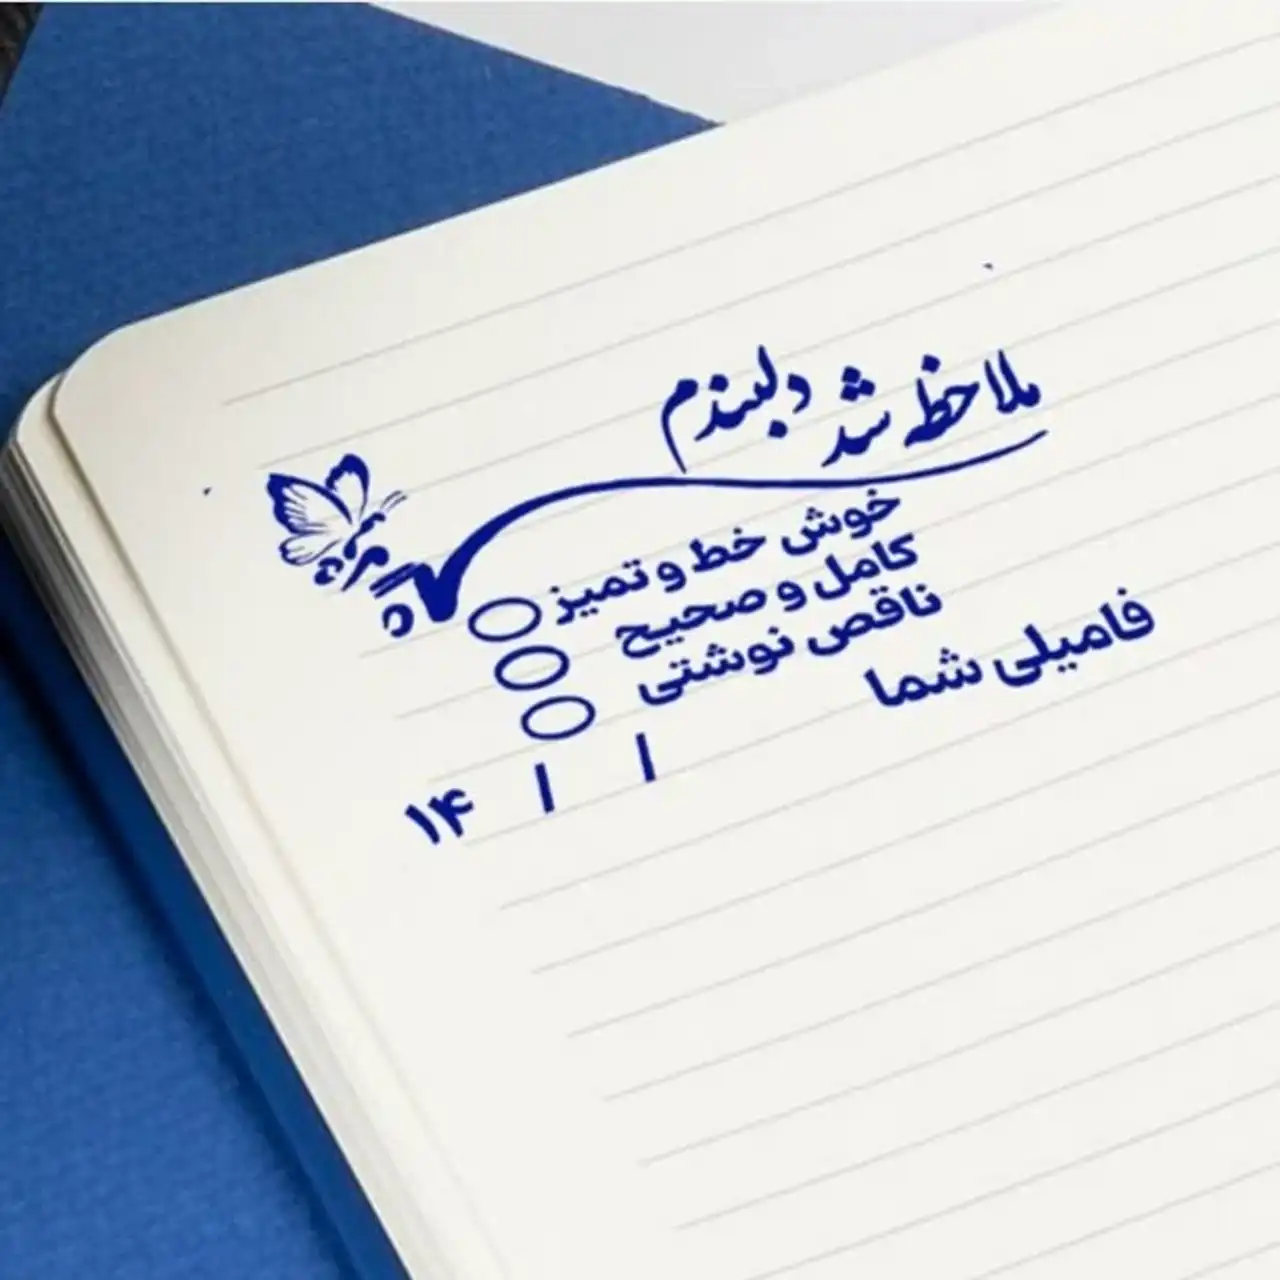 ملاحظه شد دلبندم
خوش خط و تمیز
کامل و صحیح
ناقص نوشتی
فامیلی شما
۱۴ / /